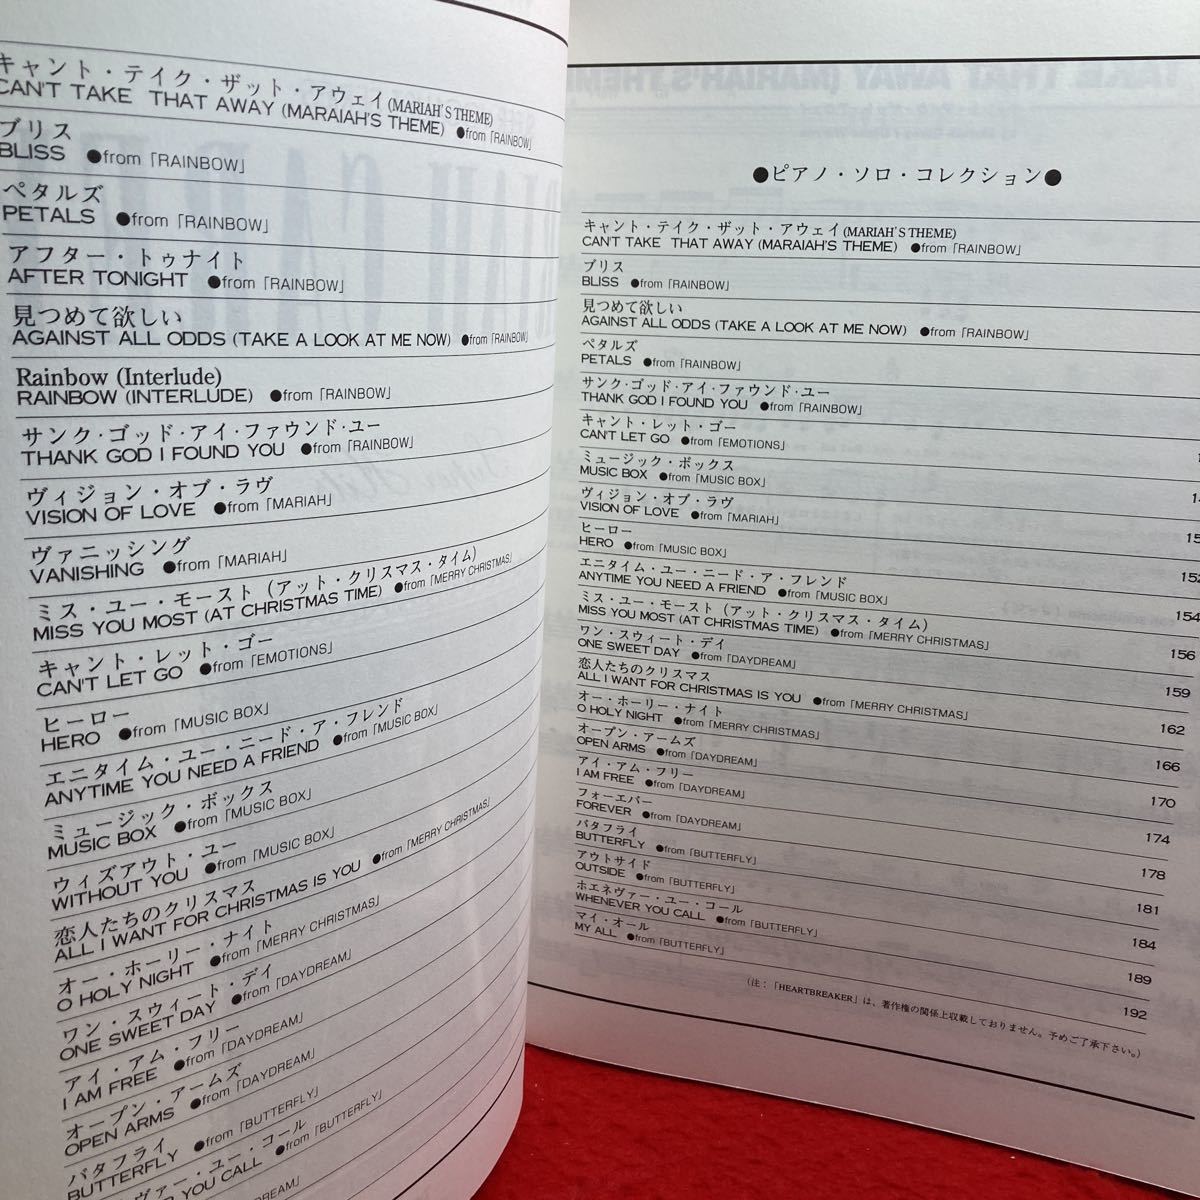 キャント・テイク・ザット・アウェイ(MARIAH'S THEME)
CAN'T TAKE THAT AWAY (MARAIAH'S THEME) ●from「RAINBOW」
ブリス
BLISS ●from「RAINBOW」
ペタルズ
PETALS ●from「RAINBOW」
アフター・トゥナイト
AFTER TONIGHT ●from「RAINBOW」
見つめて欲しい
AGAINST ALL ODDS (TAKE A LOOK AT ME NOW) ●from「RAINBOW」
Rainbow (Interlude)
RAINBOW (INTERLUDE) ●from「RAINBOW」
サンク・ゴッド・アイ・ファウンド・ユー
THANK GOD I FOUND YOU ●from「RAINBOW」
ヴィジョン・オブ・ラヴ
VISION OF LOVE ●from「MARIAH」
ヴァニッシング
VANISHING ●from「MARIAH」
ミス・ユー・モースト(アット・クリスマス・タイム)
MISS YOU MOST (AT CHRISTMAS TIME) ●from「MERRY CHRISTMAS」
キャント・レット・ゴー
CAN'T LET GO ●from「EMOTIONS」
ヒーロー
HERO ●from「MUSIC BOX」
エニタイム・ユー・ニード・ア・フレンド
ANYTIME YOU NEED A FRIEND ●from「MUSIC BOX」
ミュージック・ボックス
MUSIC BOX ●from「MUSIC BOX」
ウィズアウト・ユー
WITHOUT YOU ●from「MUSIC BOX」
恋人たちのクリスマス
ALL I WANT FOR CHRISTMAS IS YOU ●from「MERRY CHRISTMAS」
オー・ホーリー・ナイト
O HOLY NIGHT ●from「MERRY CHRISTMAS」
ワン・スウィート・デイ
ONE SWEET DAY ●from「DAYDREAM」
アイ・アム・フリー
I AM FREE ●from「DAYDREAM」
オープン・アームズ
OPEN ARMS ●from「DAYDREAM」
バタフライ
BUTTERFLY ●from「BUTTERFLY」
ヴァー・ユー・コール
YOU CALL ●from「BUTTERFLY」
●from「DAYDREAM」
●ピアノ・ソロ・コレクション●
キャント・テイク・ザット・アウェイ(MARIAH'S THEME)
CAN'T TAKE THAT AWAY (MARAIAH'S THEME) ●from「RAINBOW」
ブリス
BLISS ●from「RAINBOW」
見つめて欲しい
AGAINST ALL ODDS (TAKE A LOOK AT ME NOW) ●from「RAINBOW」
ペタルズ
PETALS ●from「RAINBOW」
サンク・ゴッド・アイ・ファウンド・ユー
THANK GOD I FOUND YOU ●from「RAINBOW」
キャント・レット・ゴー
CAN'T LET GO ●from「EMOTIONS」
ミュージック・ボックス
MUSIC BOX ●from「MUSIC BOX」
ヴィジョン・オブ・ラヴ
VISION OF LOVE ●from「MARIAH」
ヒーロー
HERO ●from「MUSIC BOX」 152
エニタイム・ユー・ニード・ア・フレンド
ANYTIME YOU NEED A FRIEND ●from「MUSIC BOX」 154
ミス・ユー・モースト(アット・クリスマス・タイム)
MISS YOU MOST (AT CHRISTMAS TIME) ●from「MERRY CHRISTMAS」 156
ワン・スウィート・デイ
ONE SWEET DAY ●from「DAYDREAM」 159
恋人たちのクリスマス
ALL I WANT FOR CHRISTMAS IS YOU ●from「MERRY CHRISTMAS」 162
オー・ホーリー・ナイト
O HOLY NIGHT ●from「MERRY CHRISTMAS」 166
オープン・アームズ
OPEN ARMS ●from「DAYDREAM」 170
アイ・アム・フリー
I AM FREE ●from「DAYDREAM」 174
フォーエバー
FOREVER ●from「DAYDREAM」 178
バタフライ
BUTTERFLY ●from「BUTTERFLY」 181
アウトサイド
OUTSIDE ●from「BUTTERFLY」 184
ホエネヴァー・ユー・コール
WHENEVER YOU CALL ●from「BUTTERFLY」 189
マイ・オール
MY ALL ●from「BUTTERFLY」 192
(注:「HEARTBREAKER」は、著作権の関係上収載しておりません。予めご了承下さい。)